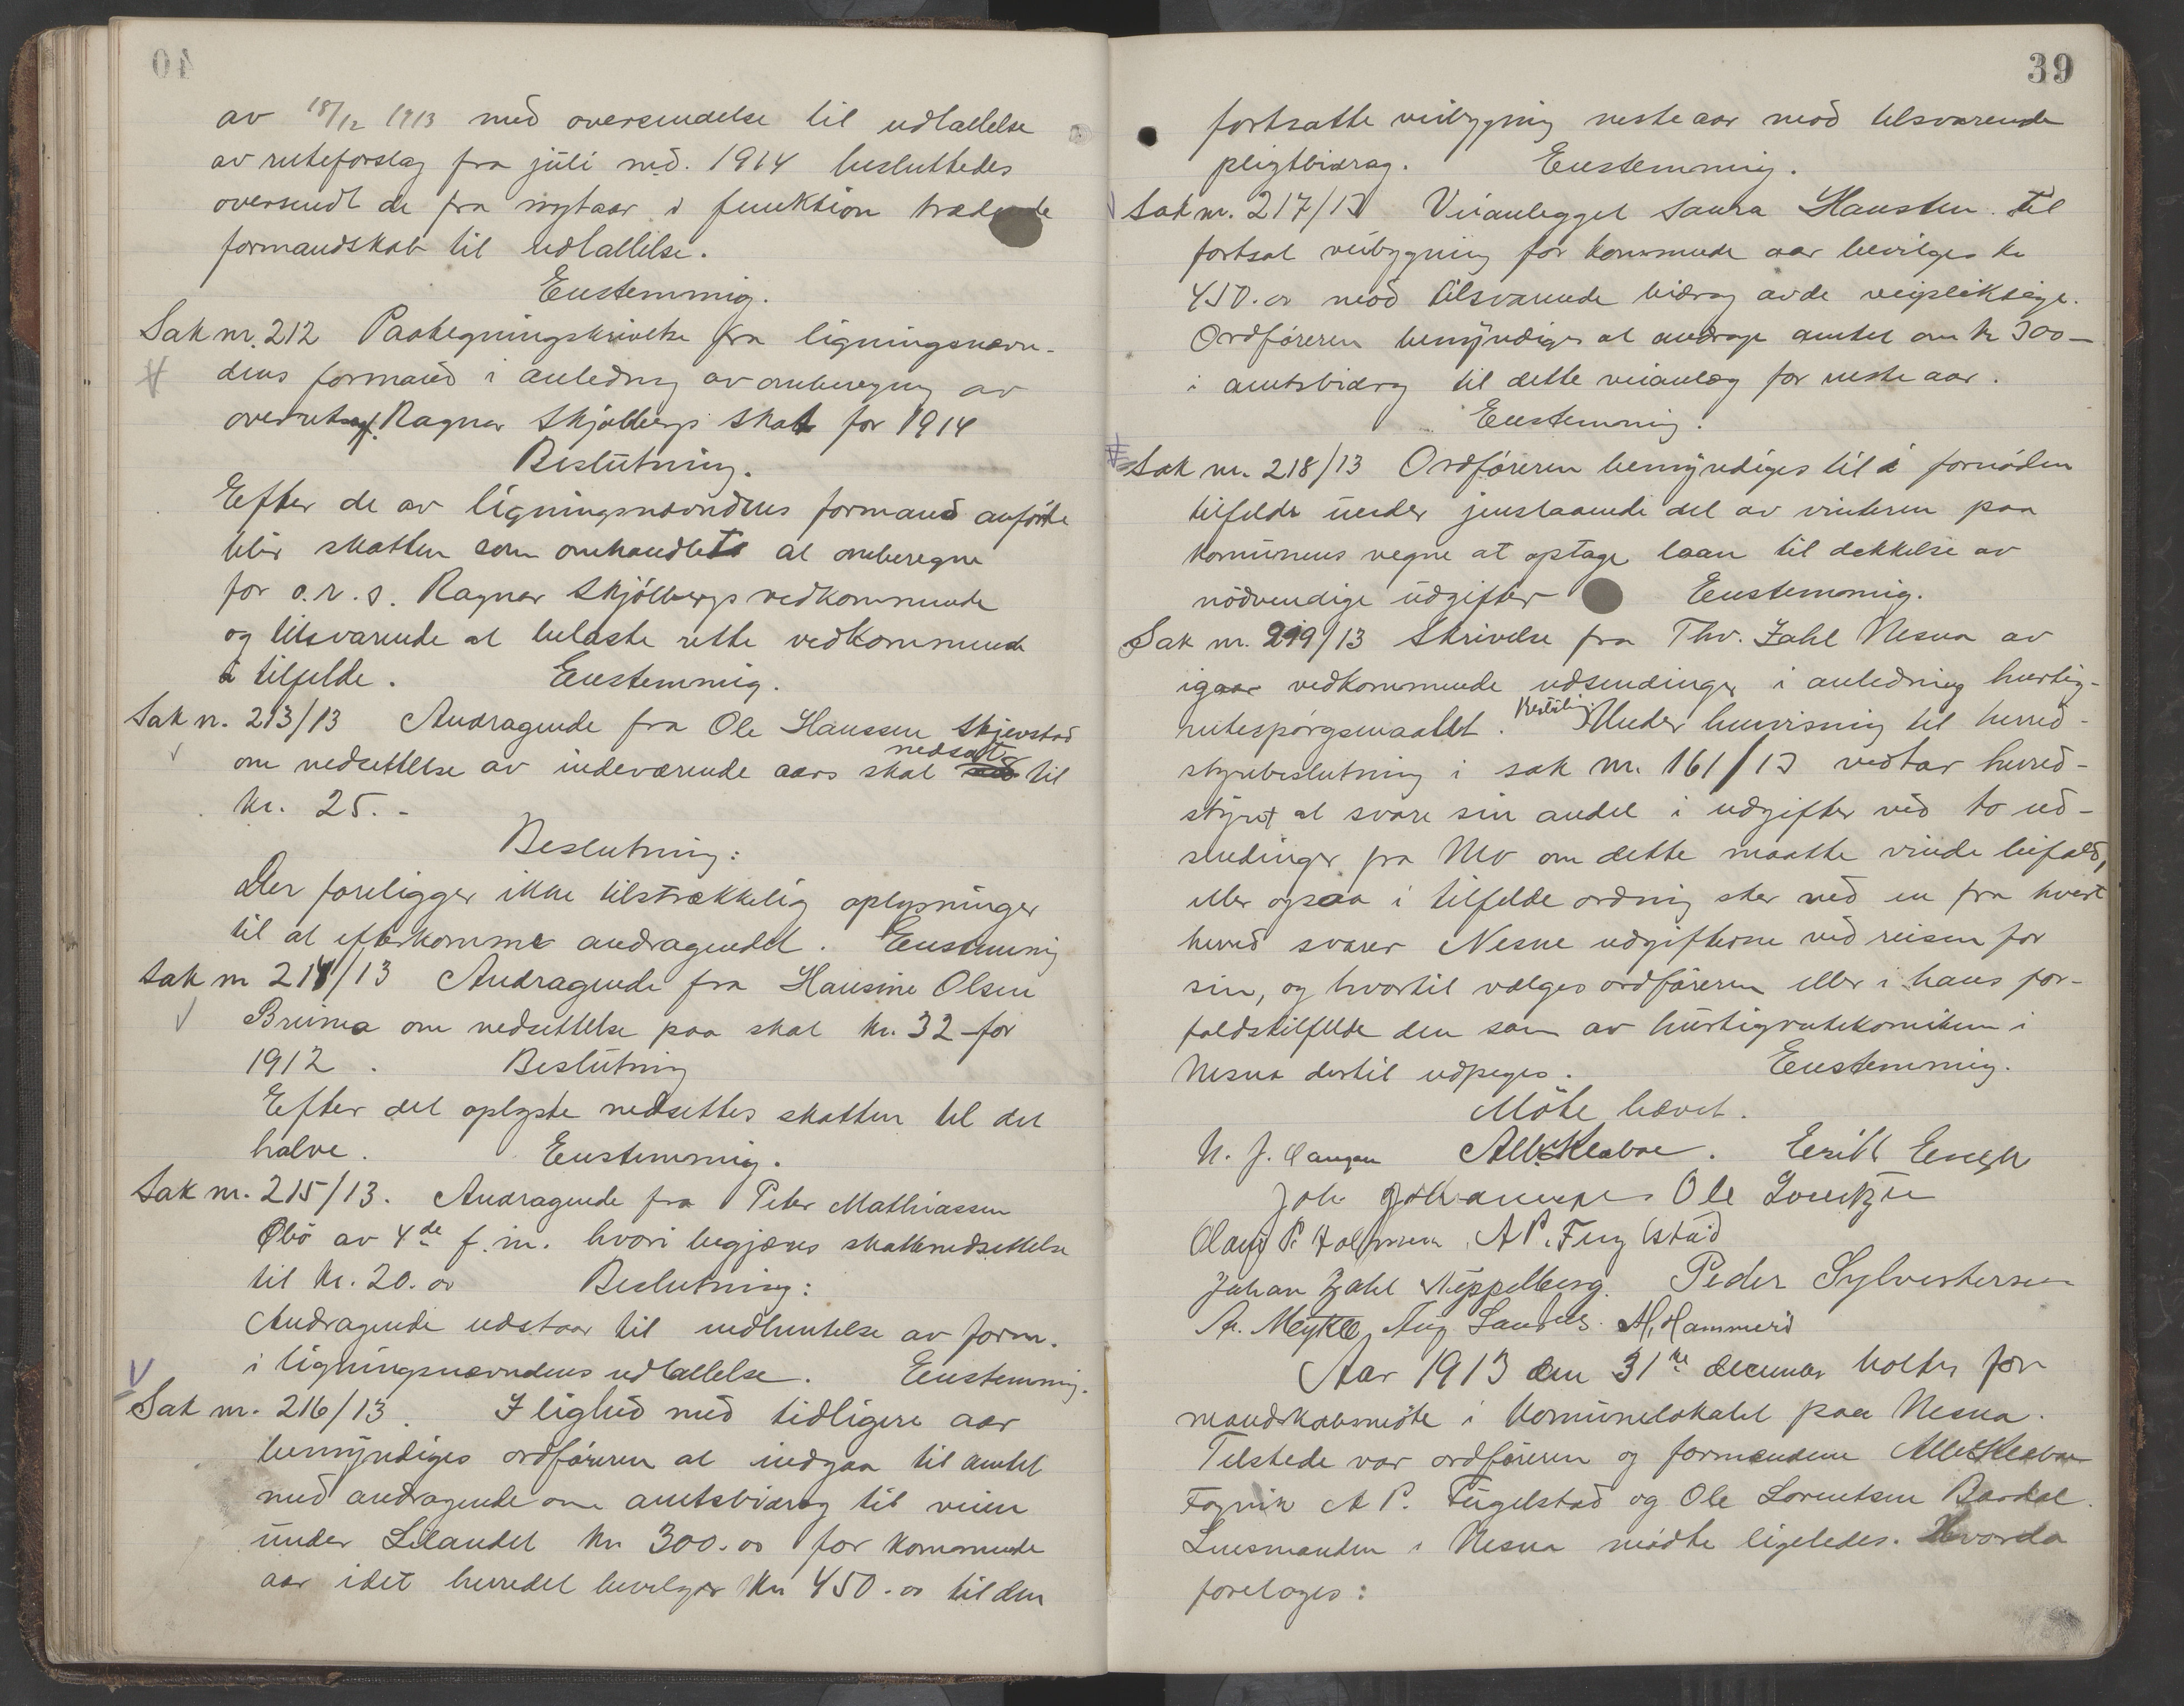 av 18/12 1913 med oversendelse til udtallelse
av ruteforslag fra juli md. 1914 besluttedes
oversendt de fra nytaar i funktion trædende
formandskab til udtallelse.
Enstemmig.
Sak nr. 212 Paategningskrivelse fra ligningsnævn-
dens formand i anledning av omberegning av
overretssagf. Ragnar Skjølbergs skat for 1914
Beslutning.
Efter de av ligningsnævndens formand anførte
blir skatten som omhandlet at omberegne
for o.r.s. Ragnar Skjølbergs vedkommende
og tilsvarende at belaste rette vedkommende
i tilfelde. Enstemmig.
Sak n. 213/13 Andragende fra Ole Hanssen Skjevstad
om nedsettelse av indeværende aars skat nedsat til
kr. 25.-
Beslutning:
Der foreligger ikke tilstrækkelig oplysninger
til at efterkomme andragendet. Enstemmig
Sak nr 214/13 Andragende fra Hansine Olsen
Bruna om nedsettelse paa skat kr. 32 for
1912. Beslutning
Efter det oplyste nedsettes skatten til det
halve. Enstemmig.
Sak nr. 215/13. Andragende fra Peter Mathiassen
av 4de f.m. hvori begjæres skattenedsettelse
til kr. 20.00 Beslutning:
Andragende udstaar til indhentelse av form.
i ligningsnævndens udtallelse. Enstemmig.
Sak nr. 216/13. I lighed med tidligere aar
bemyndiges ordføreren at indgaa til amtet
med andragende om amtsbidrag til veien
under Lilandet kr 300.00 for kommende
aar idet herredet bevilger kr 450.00 til den
39
fortsatte veibygning neste aar mod tilsvarende
pligtbidrag. Enstemmig.
Sak nr. 217/13 Veianlegget Saura Hausten. Til
fortsat veibygning for kommende aar bevilges kr
450.00 mod tilsvarende bidrag av de veipliktige.
Ordføreren bemyndiges at andrage amtet om kr 300-
i amtsbidrag til dette veianlæg for neste aar.
Enstemmig.
Sak nr. 218/13 Ordføreren bemyndiges til i fornøden
tilfelde under jenstaaende del av vinteren paa
komunens vegne at optage laan til dekkelse av
nødvendige udgifter Enstemmig.
Sak nr. 219/13 Skrivelse fra Thv. Zahl Nesna av
igaar vedkommende udsendinger i anledning hurtig-
rutespørgsmaalet. Beslutning: Under henvisning til herred-
styrebeslutning i sak nr. 161/13 vedtar herred-
styret at svare sin andel i udgifter ved to ud-
sendinger fra Mo om dette maatte vinde bifald,
eller ogsaa i tilfelde ordning sker med en fra hvert
herred svarer Nesne udgifterne ved reisen for
sin, og hvortil vælges ordføreren eller i hans for-
faldstilfelde den som av hurtigrutekomiteen i
Nesna dertil udpeges. Enstemmig.
Møte hævet.
N. J. Langen Alb. Kleboe. Erikk Engh
Joh Johannesen Ole Lorentzen
Olaus P. Holmen A P. Fuglstad
Johan Zahl Meppelberg. Peder Sylvestersen
A. Meykle, Aug Sandnes. A. Hammerø
Aar 1913 den 31te december holtes for
mandskabsmøte i Komunelokalet paa Nesna.
Tilstede var ordføreren og formændene Alb. Kleboe
Fagvik A P. Fugelstad og Ole Lorentsen Bardal.
Lensmanden i Nesna mødte ligeledes. Hvorda
foretoges: